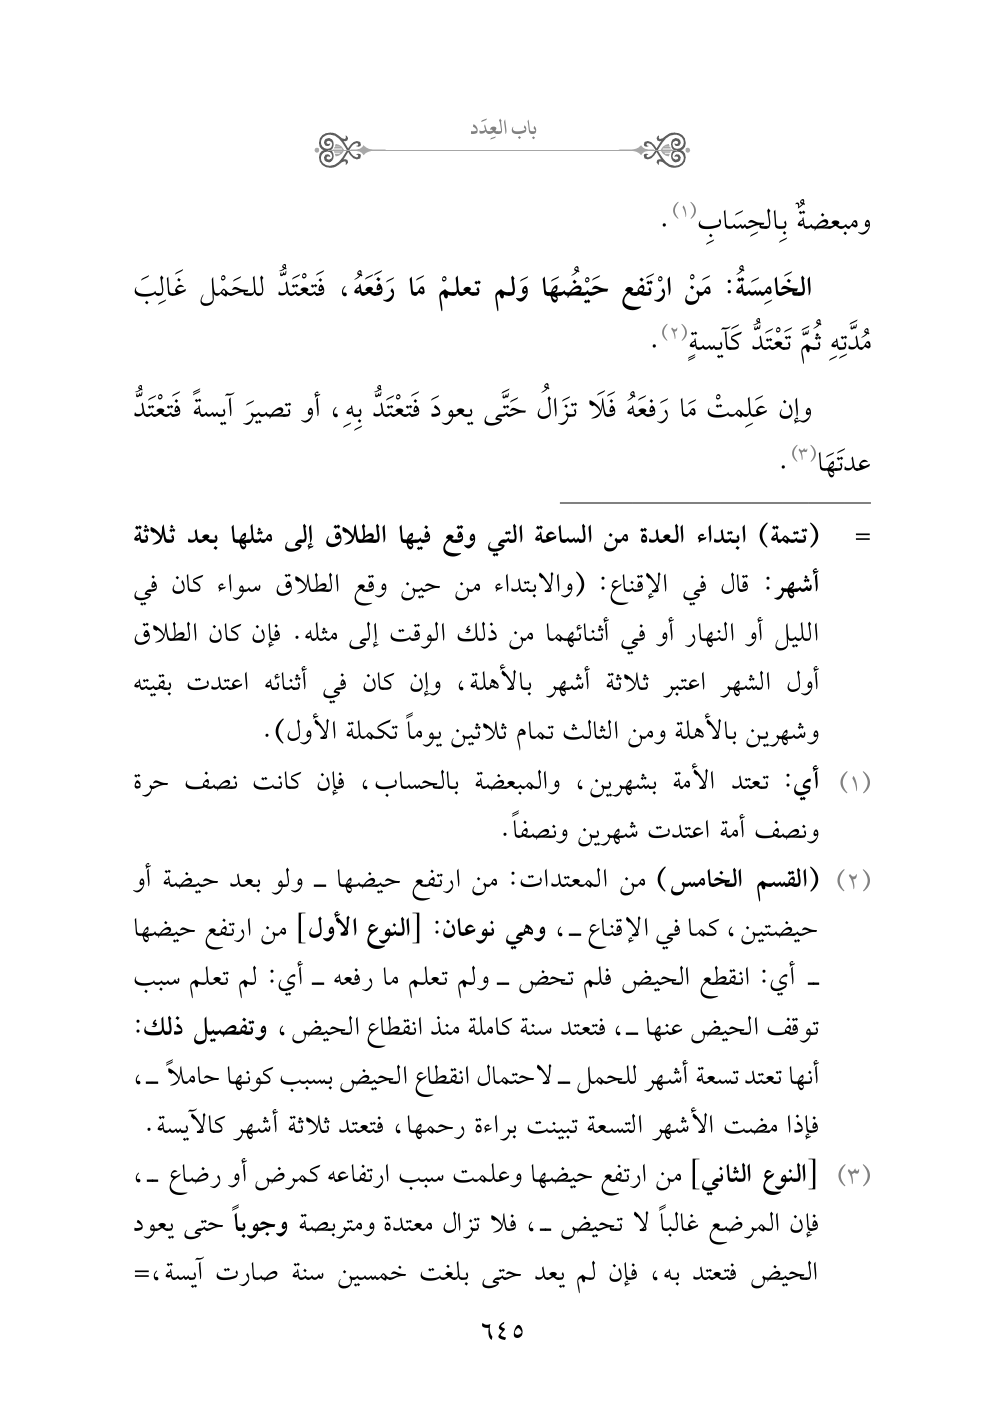 باب العِدَد
ومبعضةٌ بِالحِسَابِ(١).
الخَامِسَةُ: مَنْ ارْتَفع حَيْضُهَا وَلم تعلمْ مَا رَفَعَهُ، فَتعْتَدُّ للحَمْل غَالِبَ
مُدَّتِهِ ثُمَّ تَعْتَدُّ كَآيسةٍ(٢).
وإن عَلِمتْ مَا رَفعَهُ فَلَا تزَالُ حَتَّى يعودَ فَتعْتَدُّ بِهِ، أو تصيرَ آيسةً فَتعْتَدُّ
عدتَهَا(٣).
= (تتمة) ابتداء العدة من الساعة التي وقع فيها الطلاق إلى مثلها بعد ثلاثة
أشهر: قال في الإقناع: (والابتداء من حين وقع الطلاق سواء كان في
الليل أو النهار أو في أثنائهما من ذلك الوقت إلى مثله. فإن كان الطلاق
أول الشهر اعتبر ثلاثة أشهر بالأهلة، وإن كان في أثنائه اعتدت بقيته
وشهرين بالأهلة ومن الثالث تمام ثلاثين يوماً تكملة الأول).
(١) أي: تعتد الأمة بشهرين، والمبعضة بالحساب، فإن كانت نصف حرة
ونصف أمة اعتدت شهرين ونصفاً.
(٢) (القسم الخامس) من المعتدات: من ارتفع حيضها ـ ولو بعد حيضة أو
حيضتين، كما في الإقناع ـ، وهي نوعان: [النوع الأول] من ارتفع حيضها
ـ أي: انقطع الحيض فلم تحض ـ ولم تعلم ما رفعه ـ أي: لم تعلم سبب
توقف الحيض عنها ـ، فتعتد سنة كاملة منذ انقطاع الحيض، وتفصيل ذلك:
أنها تعتد تسعة أشهر للحمل ـ لاحتمال انقطاع الحيض بسبب كونها حاملاً ـ،
فإذا مضت الأشهر التسعة تبينت براءة رحمها، فتعتد ثلاثة أشهر كالآيسة.
(٣) [النوع الثاني] من ارتفع حيضها وعلمت سبب ارتفاعه كمرض أو رضاع ـ،
فإن المرضع غالباً لا تحيض ـ، فلا تزال معتدة ومتربصة وجوباً حتى يعود
الحيض فتعتد به، فإن لم يعد حتى بلغت خمسين سنة صارت آيسة،=
٦٤٥